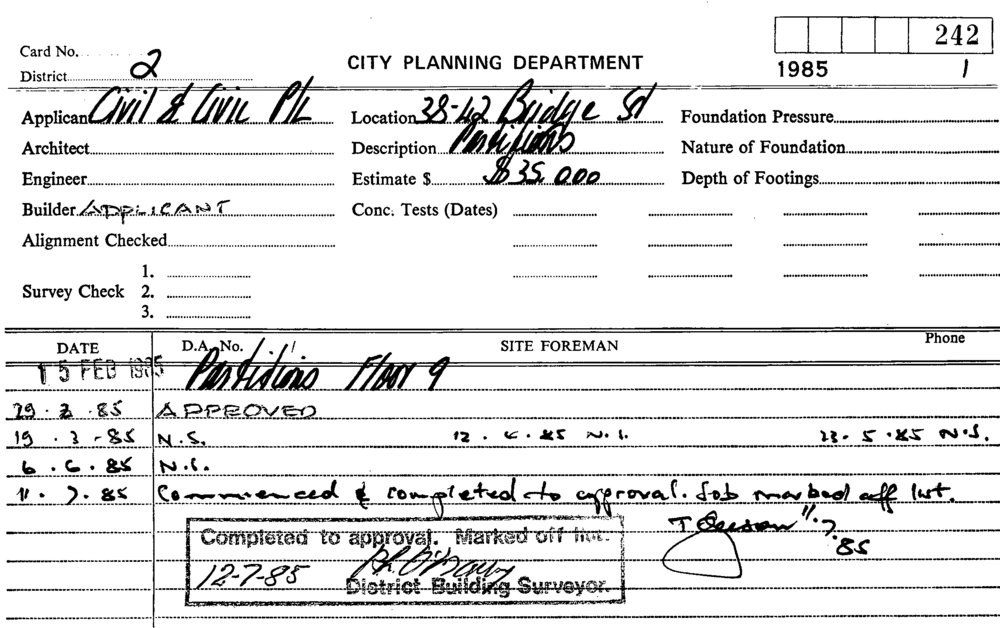 242
Card No.
District 2
CITY PLANNING DEPARTMENT
1985 1
Applicant Civil & Civic P/L
Location 38-42 Bridge St
Foundation Pressure
Architect
Description Partitions
Nature of Foundation
Engineer
Estimate $ $35,000
Depth of Footings
Builder APPLICANT
Conc. Tests (Dates)
Alignment Checked
Survey Check
1.
2.
3.
DATE D.A. No. SITE FOREMAN Phone
15 FEB 1985 Partitions Floor 9
APPROVED
19.3.85 N.S. 12.4.85 N.S. 23.5.85 N.S.
6.6.85 N.S.
11.7.85 Commenced & completed to approval. Job marked off list.
11.7.85
Completed to approval. Marked off list.
12-7-85
District Building Surveyor.